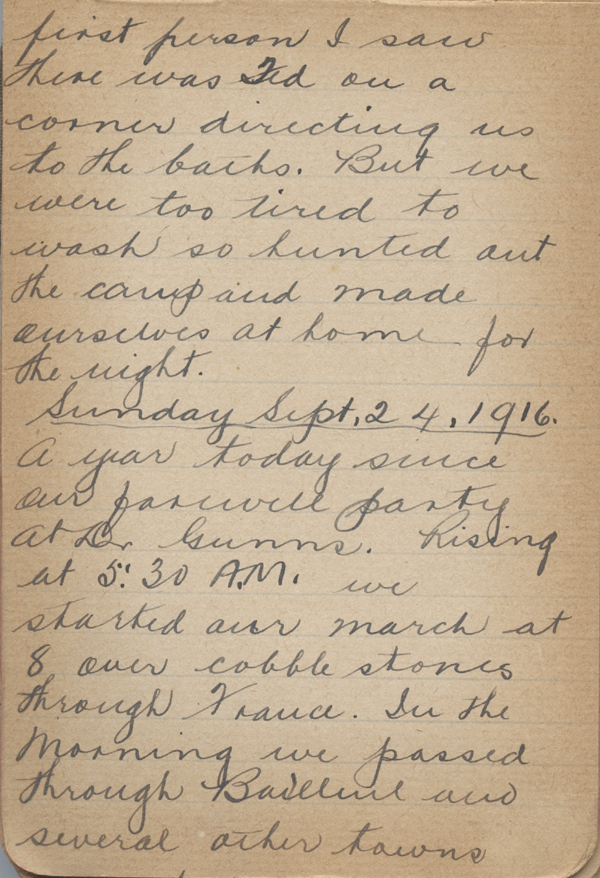 first person I saw
there was Ted on a
corner directing us
to the baths. But we
were too tired to
wash so hunted out
the camp and made
ourselves at home for
the night.
Sunday Sept, 24, 1916.
A year today since
our farewell party
at Dr Gunns. Rising
at 5:30 A.M. we
started our march at
8 over cobble stones
through France. In the
Morning we passed
through Bailleul and
several other towns